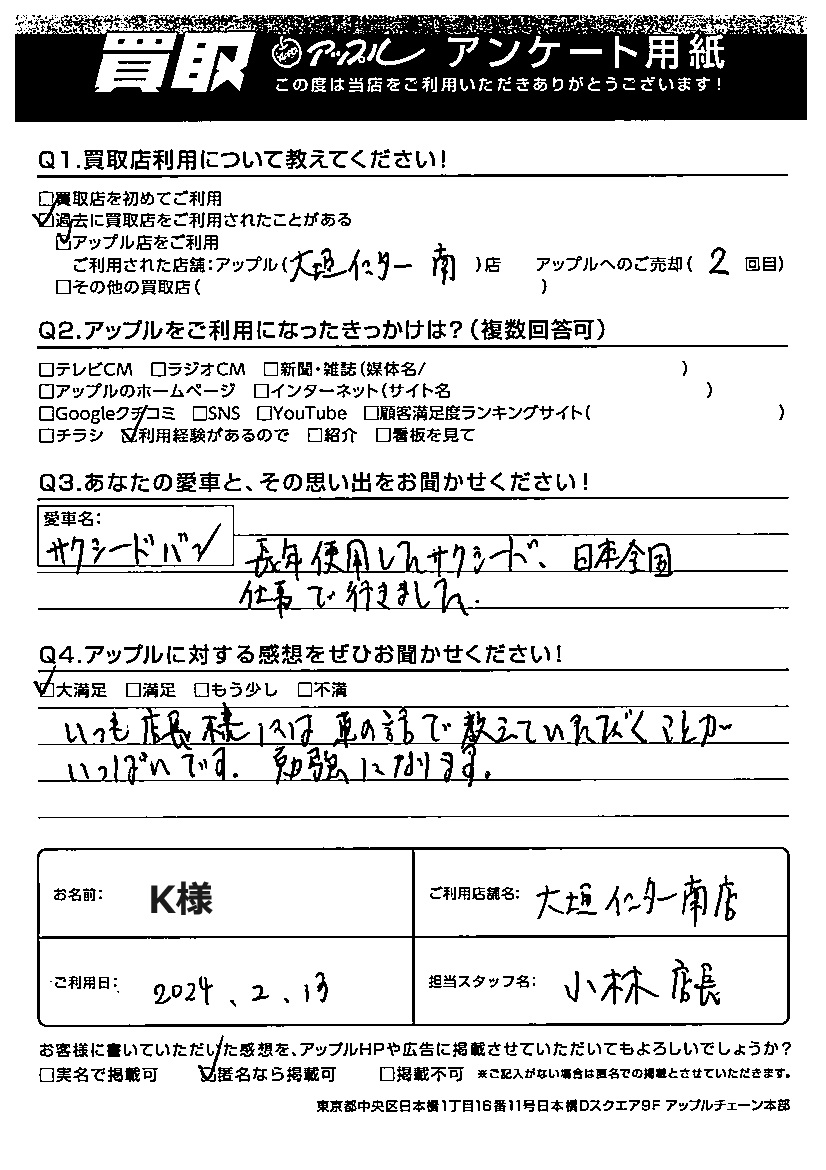 買取 アップル アンケート用紙
この度は当店をご利用いただきありがとうございます!
Q1.買取店利用について教えてください!
□買取店を初めてご利用
☑過去に買取店をご利用されたことがある
☑アップル店をご利用
ご利用された店舗:アップル(大垣インター南)店 アップルへのご売却(2回目)
□その他の買取店( )
Q2.アップルをご利用になったきっかけは?(複数回答可)
□テレビCM □ラジオCM □新聞・雑誌(媒体名/ )
□アップルのホームページ □インターネット(サイト名 )
□Googleクチコミ □SNS □YouTube □顧客満足度ランキングサイト( )
□チラシ ☑利用経験があるので □紹介 □看板を見て
Q3.あなたの愛車と、その思い出をお聞かせください!
愛車名:
サクシードバン
長年使用したサクシード、日本全国
仕事で行きました.
Q4.アップルに対する感想をぜひお聞かせください!
☑大満足 □満足 □もう少し □不満
いつも店長様には車の話で教えていただくことが
いっぱいです。勉強になります。
お名前: K様 ご利用店舗名: 大垣インター南店
ご利用日: 2024.2.13 担当スタッフ名: 小林店長
お客様に書いていただいた感想を、アップルHPや広告に掲載させていただいてもよろしいでしょうか?
□実名で掲載可 ☑匿名なら掲載可 □掲載不可 ※ご記入がない場合は匿名での掲載とさせていただきます。
東京都中央区日本橋1丁目16番11号日本橋Dスクエア9F アップルチェーン本部